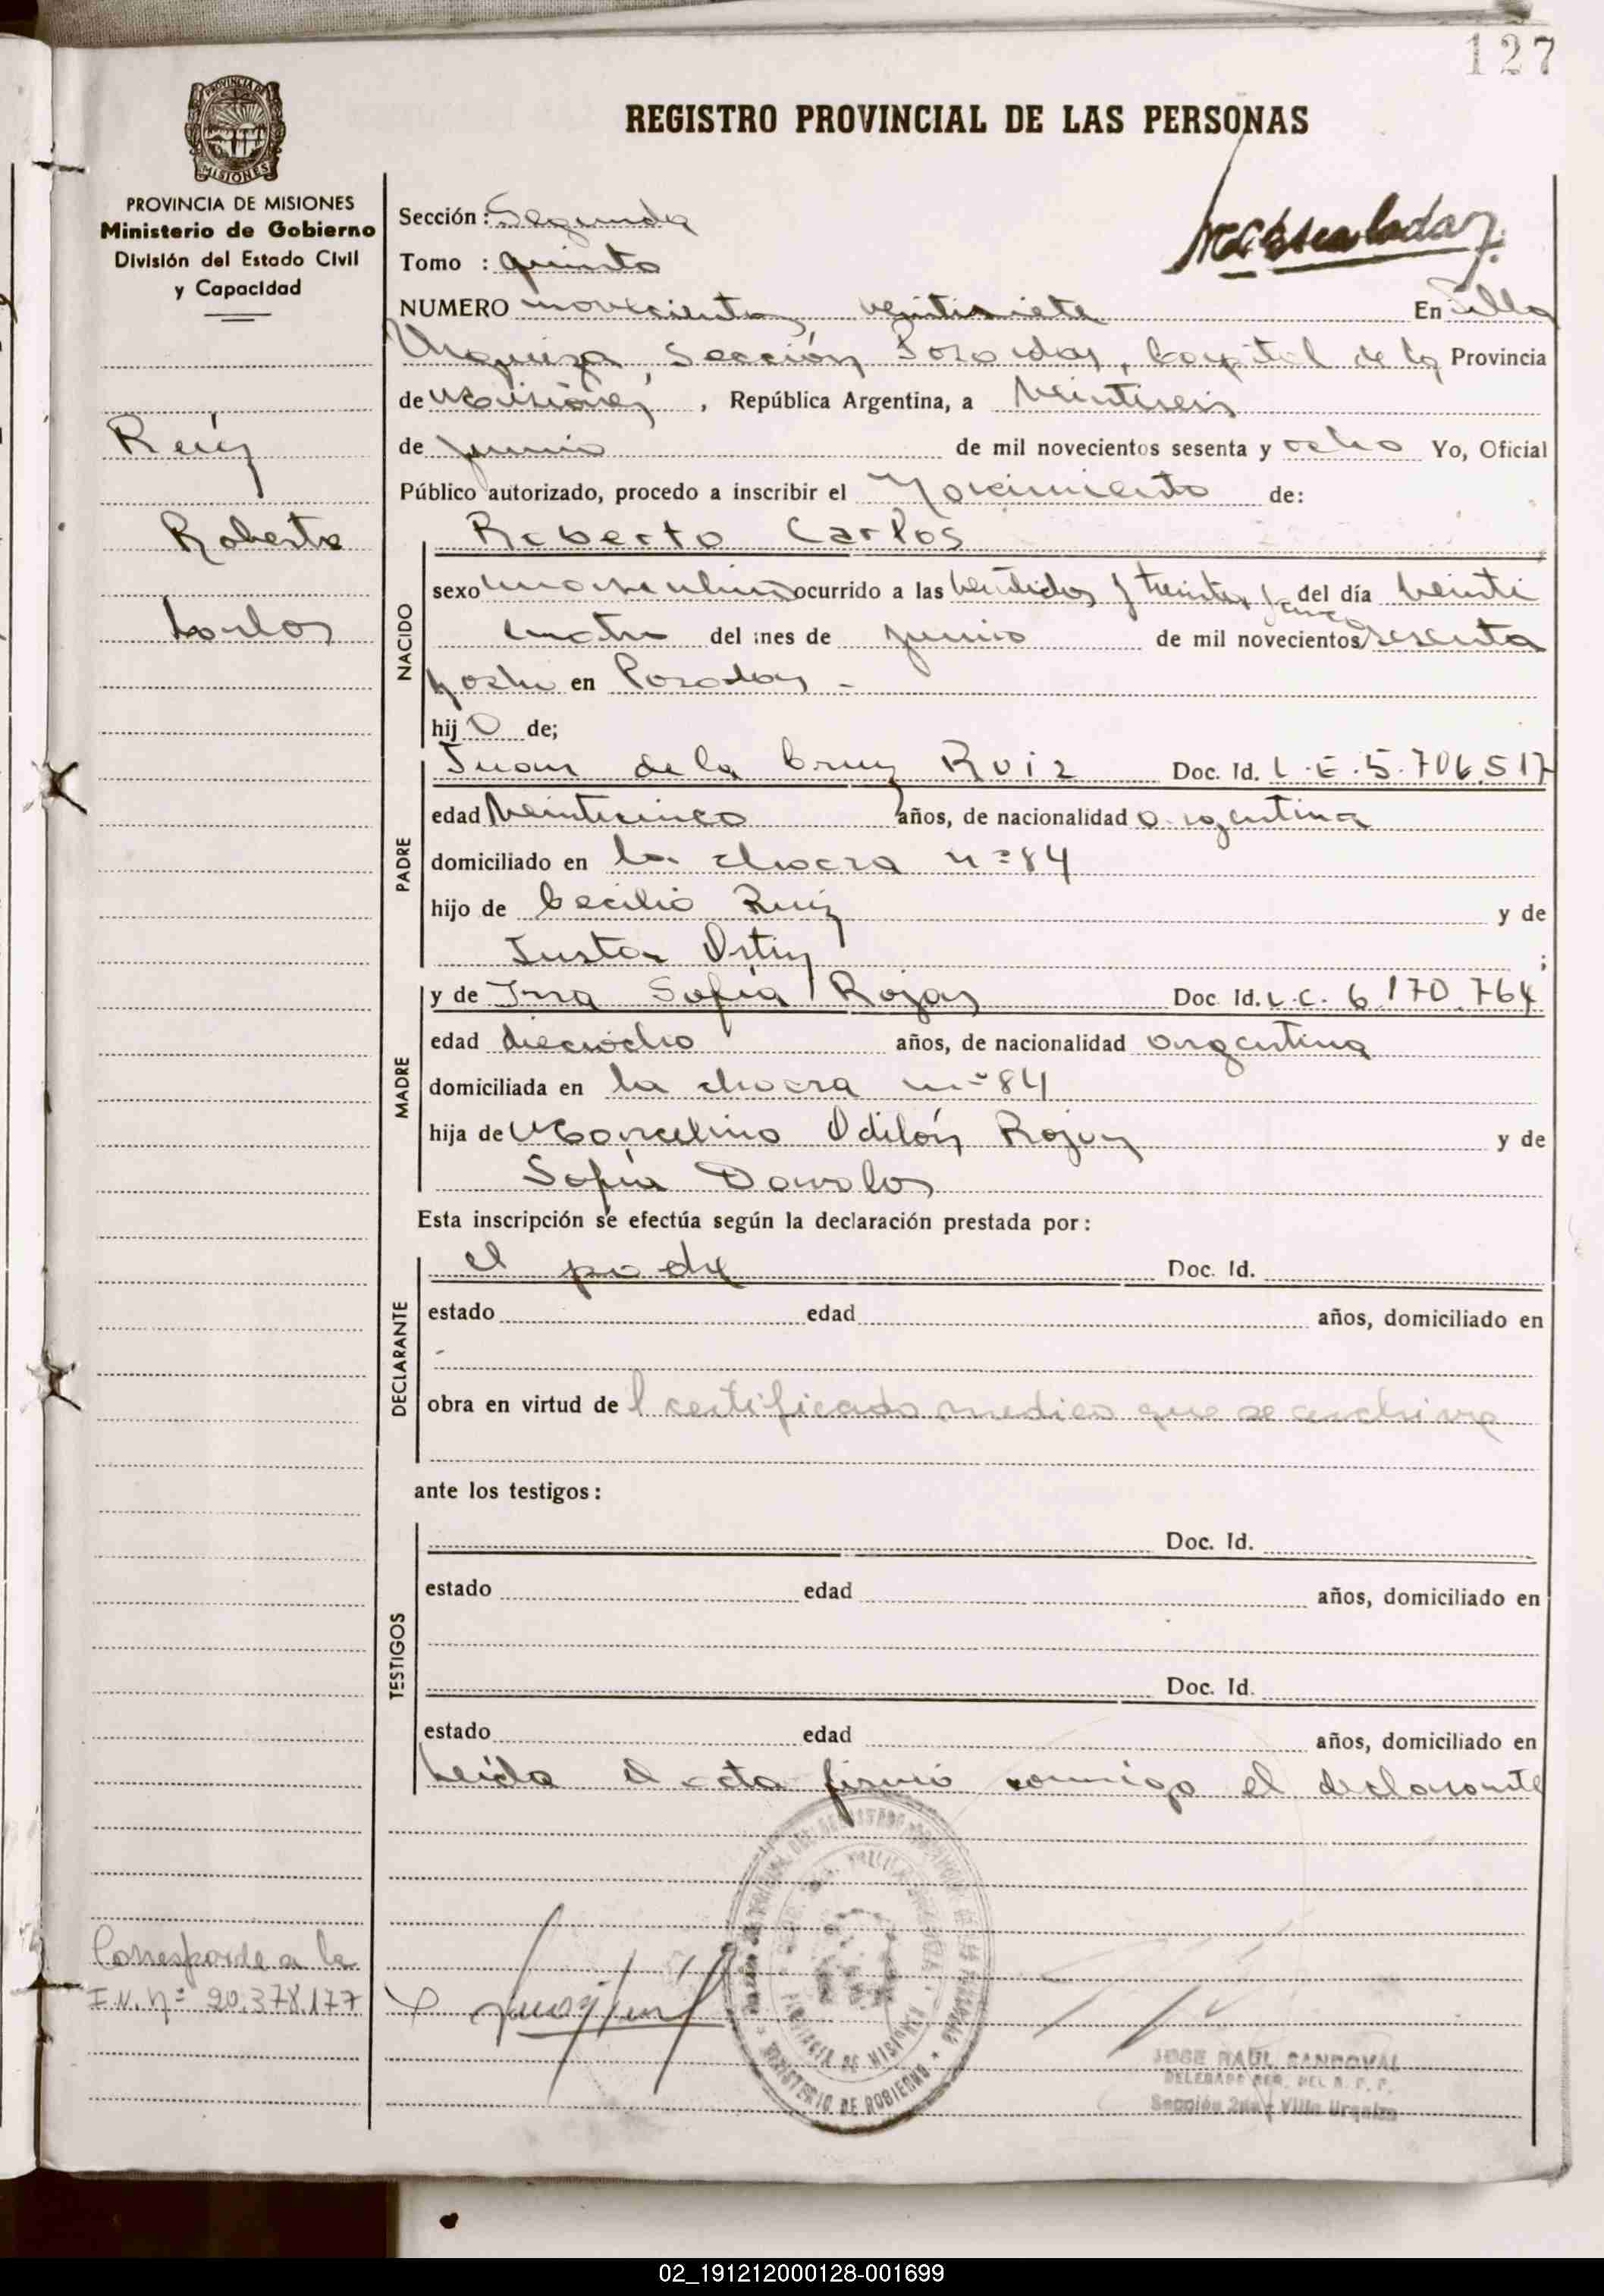 127
PROVINCIA DE
MISIONES
REGISTRO PROVINCIAL DE LAS PERSONAS
PROVINCIA DE MISIONES
Ministerio de Gobierno
División del Estado Civil
y Capacidad
Sección: Segunda
Tomo : quinto
NUMERO novecientos veintisiete En Villa
Urquiza, Sección Posadas, Capital de la Provincia
de Misiones, República Argentina, a veintiseis
de junio de mil novecientos sesenta y ocho Yo, Oficial
Público autorizado, procedo a inscribir el Nacimiento de:
Ruiz
Roberto
Carlos
NACIDO
Roberto Carlos
sexo masculino ocurrido a las veintidos y treinta y cinco del día veinti
cuatro del mes de junio de mil novecientos sesenta
y ocho en Posadas -
hijo de;
PADRE
Juan de la Cruz Ruiz Doc. Id. L.E. 5.706.517
edad veinticinco años, de nacionalidad argentina
domiciliado en la chacra nº 84
hijo de Cecilio Ruiz y de
Justa Ortiz ;
MADRE
y de Sofía Rojas Doc. Id. L.C. 6.170.764
edad dieciocho años, de nacionalidad argentina
domiciliada en la chacra nº 84
hija de Marcelino Odilón Rojas y de
Sofía Davalos
Esta inscripción se efectúa según la declaración prestada por:
DECLARANTE
el padre Doc. Id.
estado edad años, domiciliado en
-
obra en virtud del certificado medico que se archiva
ante los testigos:
TESTIGOS
Doc. Id.
estado edad años, domiciliado en
Doc. Id.
estado edad años, domiciliado en
Leída el acta firmó conmigo el declarante
Corresponde a la
I.N. Nº 20.378.177
MINISTERIO DE GOBIERNO
PROVINCIA DE MISIONES
JOSE RAUL SANDOVAL
DELEGADO DEL R. P. P.
Sección 2da - Villa Urquiza
02_191212000128-001699